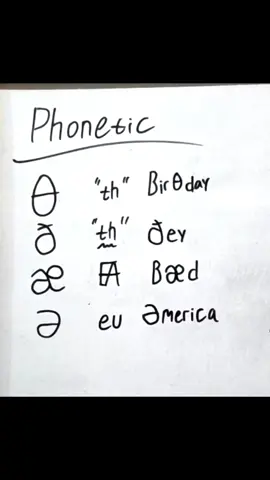 Phonetic
θ "th" Birθday
ð "th" ðey
æ A Bæd
ə eu əmerica